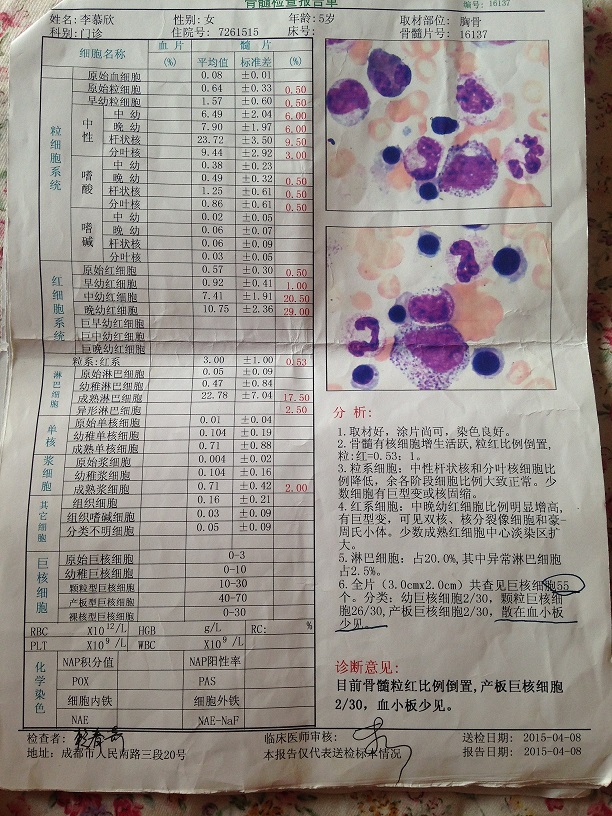 骨髓检查报告单
编号: 16137
姓名:李慕欣 性别:女 年龄:5岁 取材部位: 胸骨
科别:门诊 住院号: 7261515 床号: 骨髓片号: 16137
细胞名称 血片 髓片
(%) 平均值 标准差 (%)
粒细胞系统
原始血细胞 0.08 ±0.01
原始粒细胞 0.64 ±0.33 0.50
早幼粒细胞 1.57 ±0.60 0.50
中性
中 幼 6.49 ±2.04 6.00
晚 幼 7.90 ±1.97 6.00
杆状核 23.72 ±3.50 9.50
分叶核 9.44 ±2.92 3.00
嗜酸
中 幼 0.38 ±0.23
晚 幼 0.49 ±0.32 0.50
杆状核 1.25 ±0.61 0.50
分叶核 0.86 ±0.61 0.50
嗜碱
中 幼 0.02 ±0.05
晚 幼 0.06 ±0.07
杆状核 0.06 ±0.09
分叶核 0.03 ±0.05
红细胞系统
原始红细胞 0.57 ±0.30 0.50
早幼红细胞 0.92 ±0.41 1.00
中幼红细胞 7.41 ±1.91 20.50
晚幼红细胞 10.75 ±2.36 29.00
巨早幼红细胞
巨中幼红细胞
巨晚幼红细胞
粒系:红系 3.00 ±1.00 0.53
淋巴细胞
原始淋巴细胞 0.05 ±0.09
幼稚淋巴细胞 0.47 ±0.84
成熟淋巴细胞 22.78 ±7.04 17.50
异形淋巴细胞 2.50
单核
原始单核细胞 0.01 ±0.04
幼稚单核细胞 0.104 ±0.19
成熟单核细胞 0.71 ±0.88
浆细胞
原始浆细胞 0.004 ±0.02
幼稚浆细胞 0.104 ±0.16
成熟浆细胞 0.71 ±0.42 2.00
其它细胞
组织细胞 0.16 ±0.21
组织嗜碱细胞 0.03 ±0.09
分类不明细胞 0.05 ±0.09
巨核细胞
原始巨核细胞 0-3
幼稚巨核细胞 0-10
颗粒型巨核细胞 10-30
产板型巨核细胞 40-70
裸核型巨核细胞 0-30
RBC X10¹²/L HGB g/L RC: %
PLT X10⁹ /L WBC X10⁹ /L
化学染色
NAP积分值 NAP阳性率
POX PAS
细胞内铁 细胞外铁
NAE NAE-NaF
分 析:
1.取材好，涂片尚可，染色良好。
2.骨髓有核细胞增生活跃,粒红比例倒置,
粒:红=0.53：1。
3.粒系细胞：中性杆状核和分叶核细胞比
例降低，余各阶段细胞比例大致正常。少
数细胞有巨型变或核固缩。
4.红系细胞：中晚幼红细胞比例明显增高,
有巨型变，可见双核、核分裂像细胞和豪-
周氏小体。少数成熟红细胞中心淡染区扩
大。
5.淋巴细胞：占20.0%,其中异常淋巴细胞
占2.5%。
6.全片（3.0cmx2.0cm）共查见巨核细胞55
个。分类：幼巨核细胞2/30，颗粒巨核细
胞26/30,产板巨核细胞2/30，散在血小板
少见。
诊断意见:
目前骨髓粒红比例倒置,产板巨核细胞
2/30，血小板少见。
检查者: 临床医师审核: 送检日期: 2015-04-08
地址: 成都市人民南路三段20号 本报告仅代表送检标本情况 报告日期: 2015-04-08